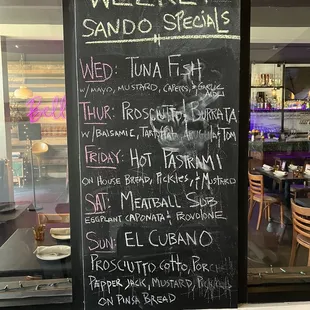 SANDO SPECIALS
WED: TUNA FISH
W/ MAYO, MUSTARD, CAPERS, & GARLIC
THUR: PROSCIUTTO & BURRATA
W/ BALSAMIC, ARUGULA & TOM
FRIDAY: HOT PASTRAMI
ON HOUSE BREAD, PICKLES, & MUSTARD
SAT: MEATBALL SUB
EGGPLANT CAPONATA & PROVOLONE
SUN: EL CUBANO
PROSCIUTTO COTTO,
PEPPER JACK, MUSTARD,
ON PINSA BREAD